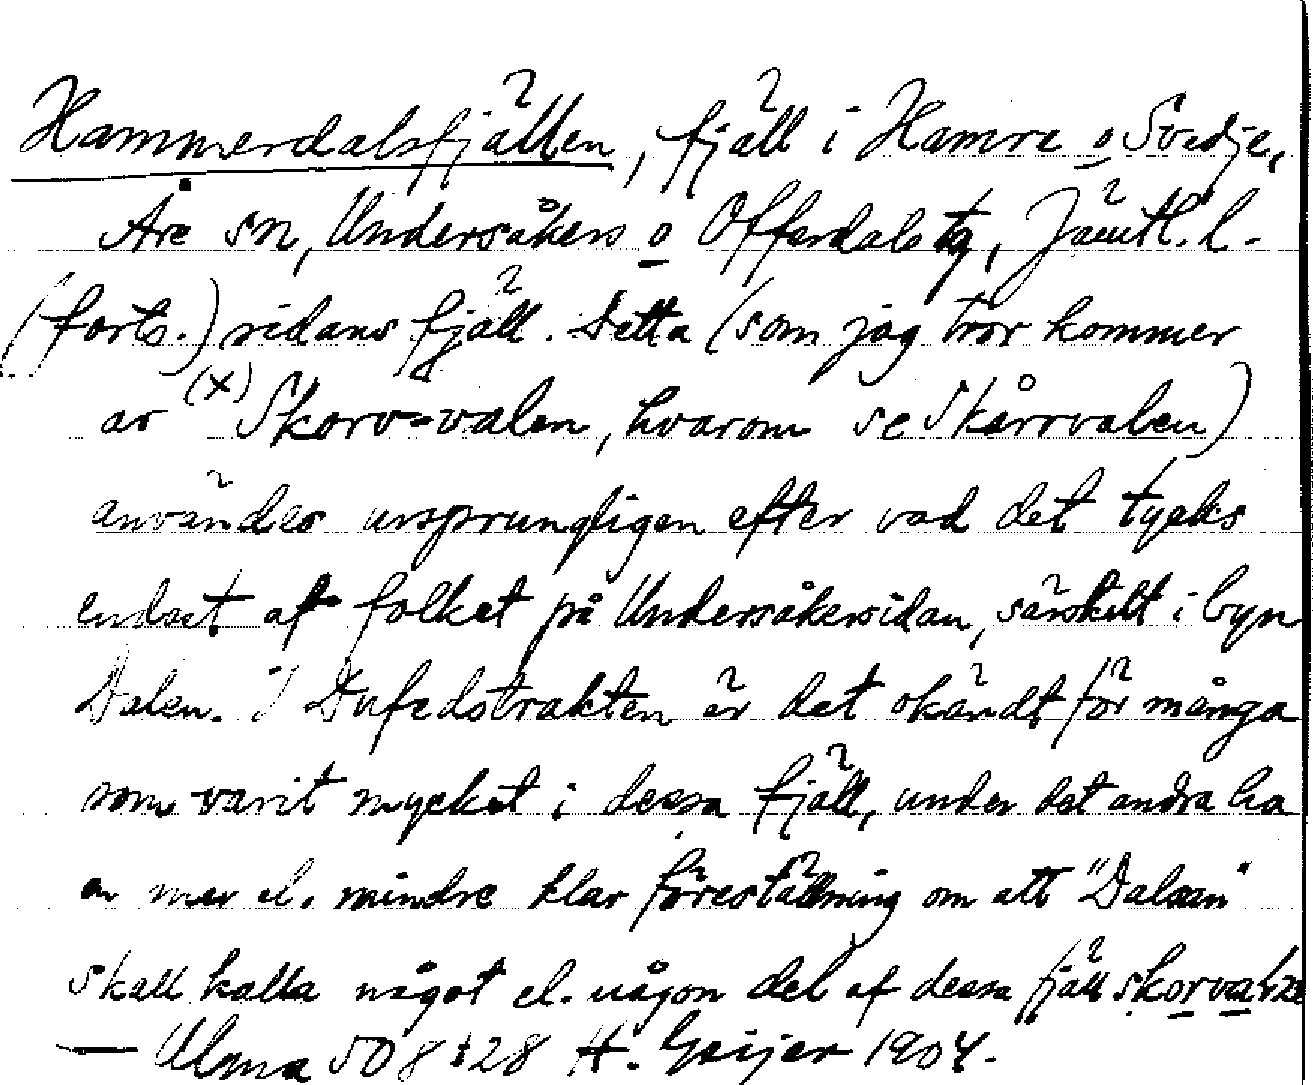 Hammerdalsfjällen, fjäll i Hamre o Svedje,
Åre sn, Undersåkers o Offerdals tg, Jämtl. l.
(forts.) sidans fjäll. Detta (som jag tror kommer
av (x) Skorv-valen, hvarom se Skårrvalen)
användes ursprungligen efter vad det tycks
endast af folket på Undersåkersidan, särskilt i byn
Dalen. I Dufedstrakten är det okändt för många
som varit mycket i dessa fjäll, under det andra ha
en mer el. mindre klar föreställning om att "Dalean"
skall kalla något el. någon del af dessa fjäll
— Ulma 508:28 H. Geijer 1904.